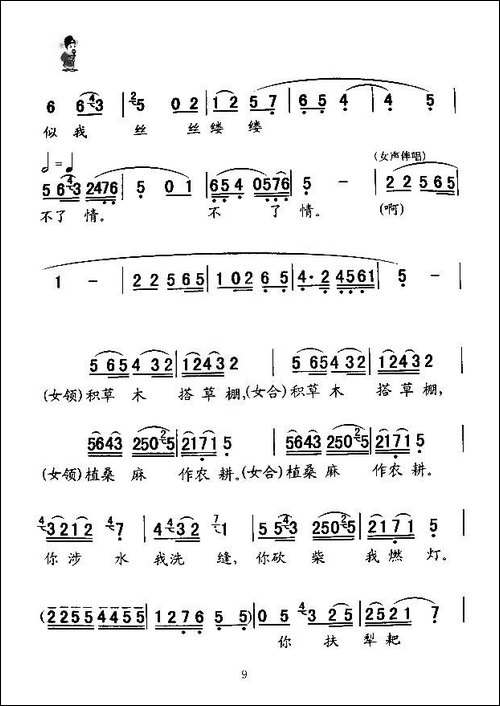 6 6 4 3 | 2 5 0 2 | 1 2 5 7 | 6 5 4 | 4 5 |
似我 丝 丝缕 缕
= (女声伴唱)
5 6 4 3 2476 | 5 0 1 | 6 5 4 0576 | 5 - | 2 2 5 6 5 |
不了 情。 不 了 情。 (啊)
1 - | 2 2 5 6 5 | 1 0 2 6 5 | 4· 2 4561 | 5 - |
5 6 5 4 3 2 | 1 2 4 3 2 | 5 6 5 4 3 2 | 1 2 4 3 2 |
(女领)积草 木 搭 草 棚,(女合)积草 木 搭 草 棚,
5643 250 2 5 | 2 1 7 1 5 | 5643 250 2 5 | 2 1 7 1 5 |
(女领)植桑 麻 作农 耕。(女合)植桑 麻 作农 耕。
4 3 2 1 2 4 7 | 4 3 2 7 1 | 5 5 4 3 250 2 5 | 2 1 7 1 5 |
你 涉 水 我洗 缝,你砍 柴 我 燃 灯。
(2255 4455 | 1 2 7 6 5 5) | 0 5 4 3 2 | 2521 7 |
你 扶 犁耙
9